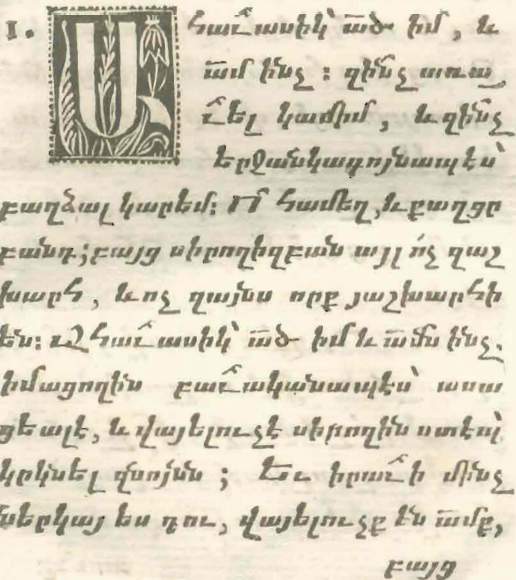 1. Ահաւասիկ՝ ած իմ, և
ամ ինչ։ զինչ առա
ւել կամիմ, և զինչ
երջանկագոյնապէս՝
բաղձալ կարեմ։ Ո՜ համեղ, և քաղցր
բանդ; բայց սիրողիզբան այլ ո՛չ զաշ
խարհ, և ոչ զայնս որք յաշխարհի
են։ Ահաւասիկ՝ ած իմ և ամ ինչ.
իմացողին բաւականապէս՝ ասա
ցեալէ, և վայելուչէ սիրողին ստէպ՝
կրկնել զսոյնս; Եւ իրաւի մինչ
ներկայ ես դու, վայելուչք են ամք,
բայց